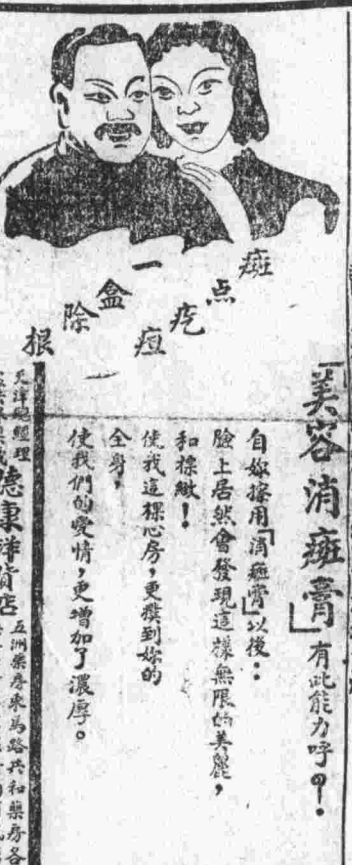 斑点疙疸
一盒除根
「美容消斑膏」有此能力呼?!
自妳擦用「消斑膏」以後:
臉上居然會發現這樣無限的美麗,
和標緻!
使我這棵心房,更撲到妳的
全身,
使我們的愛情,更增加了濃厚。
天津總經理
德康洋貨店
五洲藥房東馬路共和藥房各